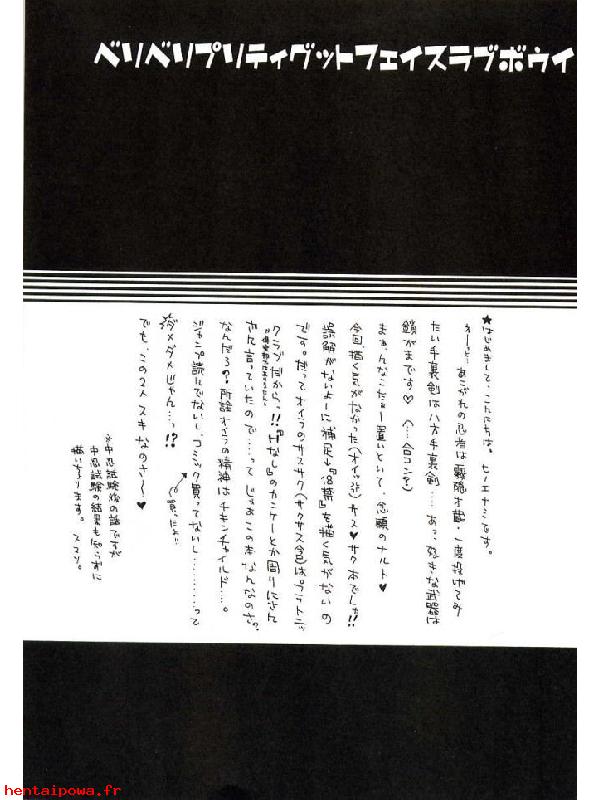 ベリベリプリティグットフェイスラブボウイ
★はじめまして、こんにちは。七ノエナミです。
えーっと…あこがれの忍者は霧隠才蔵・一度投げてみ
たい手裏剣は八方手裏剣……あっ、好きな武器は
鎖がまです♡ (…合コン?)
まぁ、んなこたぁー置いといて、念願のナルト♥
今回、描く気がなかった(オイッ) サス♥サク本でしょ!!
誤解がないよーに補足↓『18禁』を描く気がないの
です。だってオイラのサスサク(サクサス含む)はプラトニッ
クラブだからっ!!『Hなし』のカンケーとか周りにさん
ざん言っていたので……って じゃあこの本なんなのさ。
なんだろ?所詮オイラの精神はチキンチャイルド…。
ジャンプ読んでないし、コミック買ってないし………って
ダメダメじゃん…っ!?
買ったよ!!
でも、この2人スキなのさ〜♥
※中忍試験後の話ですが
中忍試験の結果も知らずに
描いちょります。スマソ。
hentaipowa.fr